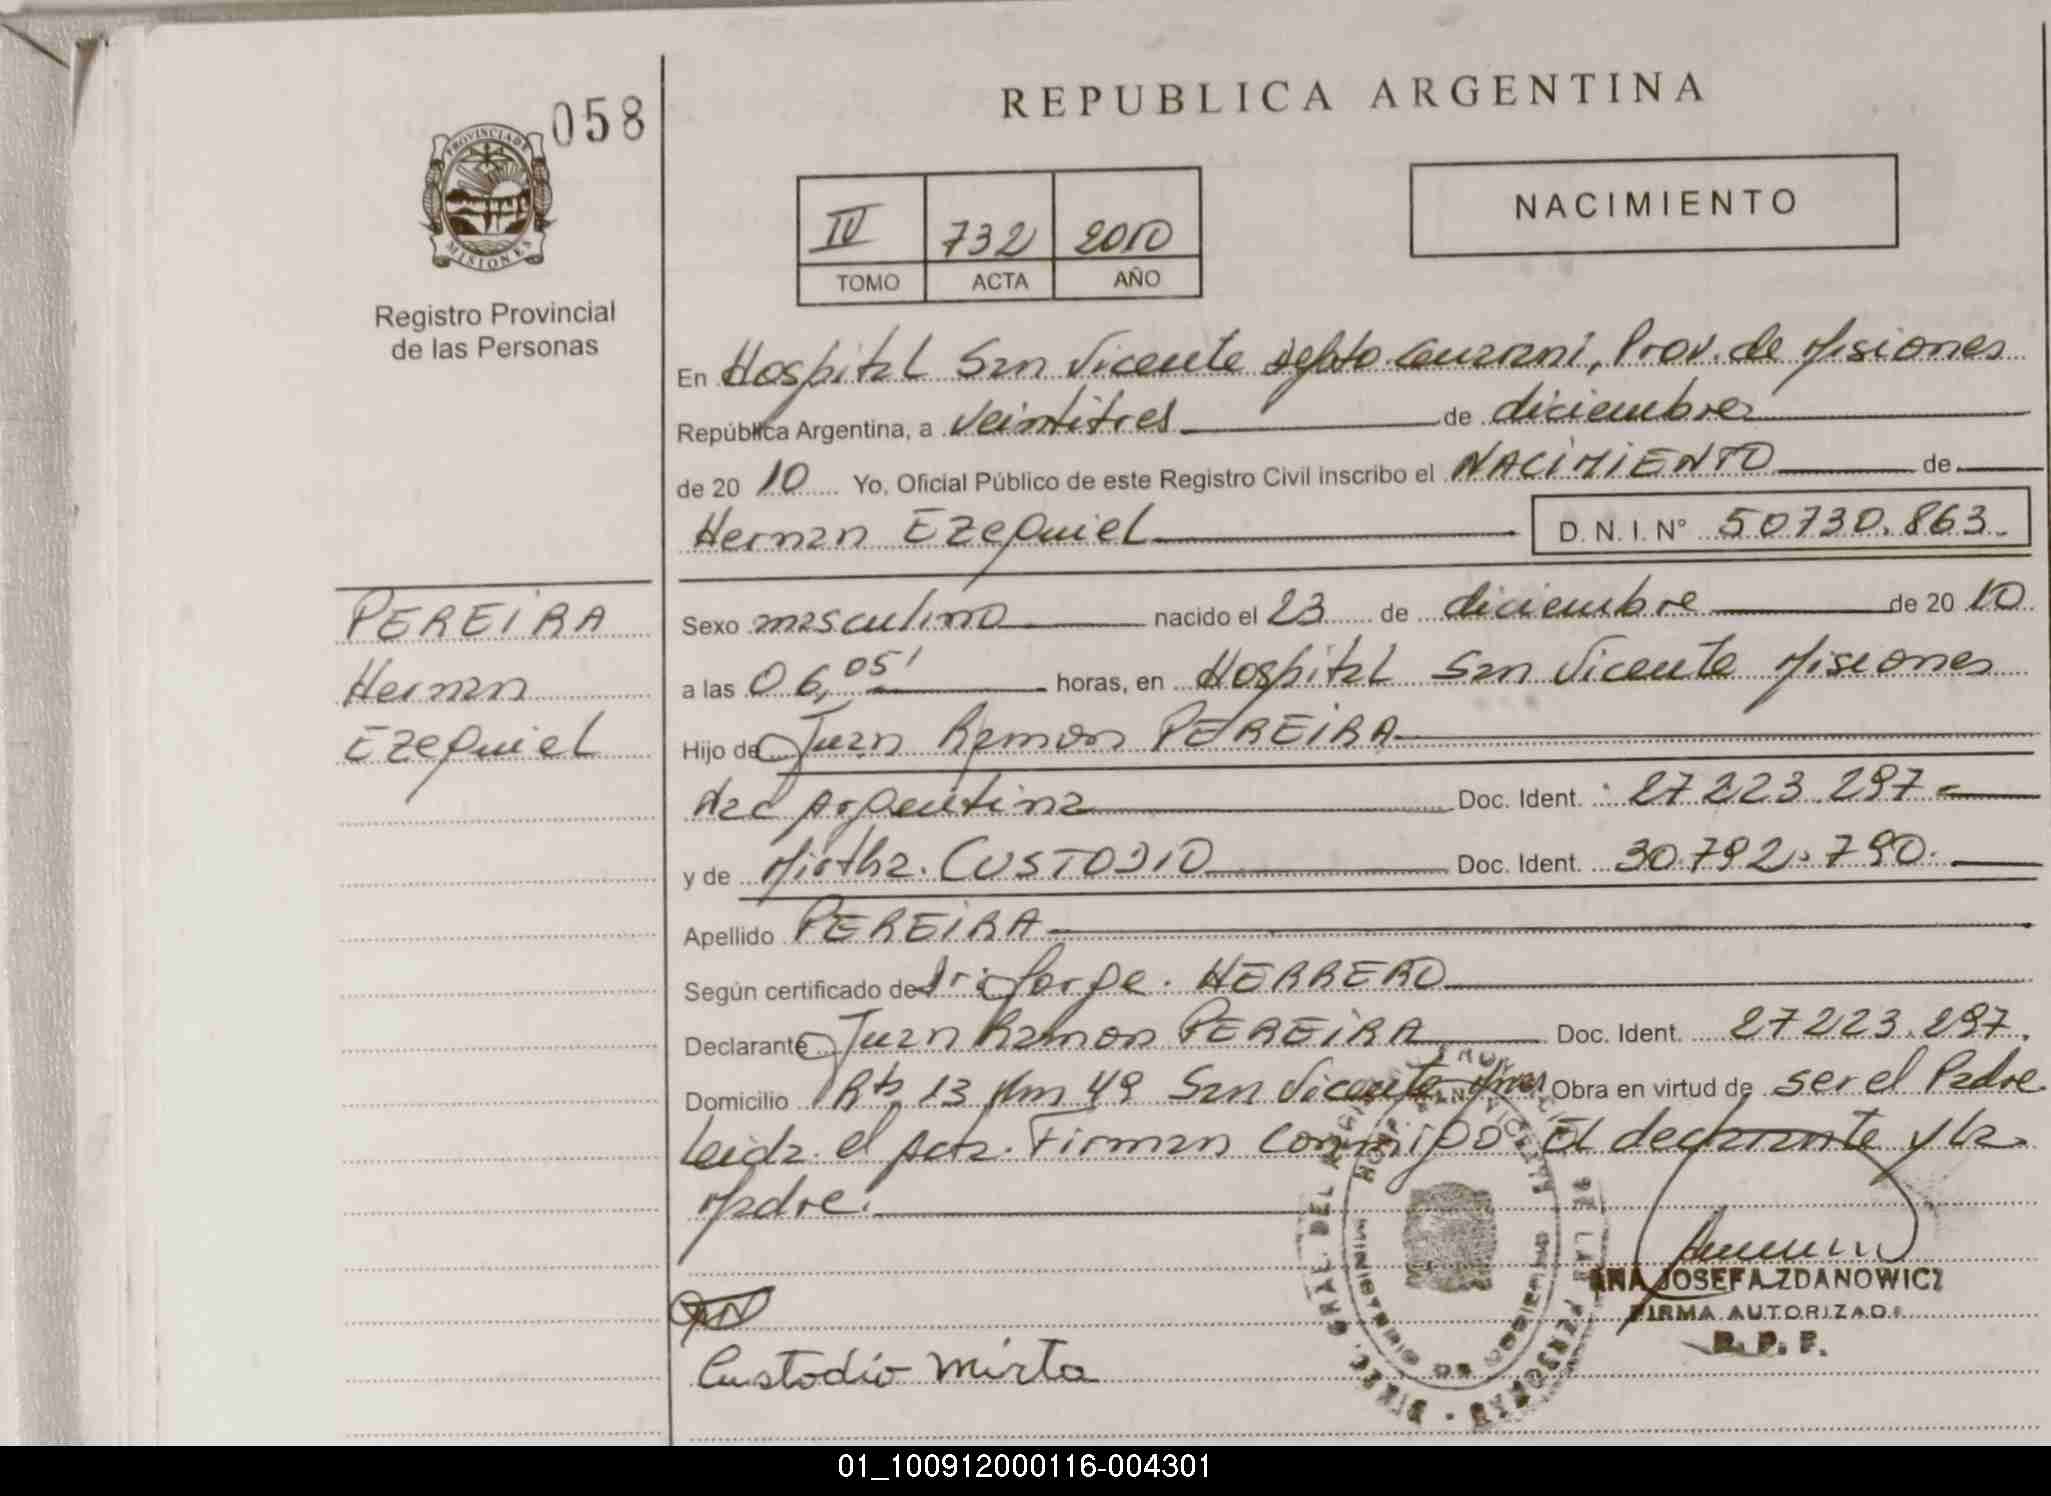 058
PROVINCIA DE
MISIONES
Registro Provincial
de las Personas
PEREIRA
Hernan
Ezequiel
REPUBLICA ARGENTINA
IV 732 2010
TOMO ACTA AÑO
NACIMIENTO
En Hospital San Vicente Depto Guarani, Prov. de Misiones
República Argentina, a veintitres de diciembre
de 20 10 Yo, Oficial Público de este Registro Civil inscribo el NACIMIENTO de
Hernan Ezequiel D. N. I. N° 50730.863.
Sexo masculino nacido el 23 de diciembre de 20 10
a las 06,05' horas, en Hospital San Vicente Misiones
Hijo de Juan Ramon PEREIRA
Nac Argentina Doc. Ident. 27223.297
y de Mirtha. CUSTODIO Doc. Ident. 30.792.790.
Apellido PEREIRA
Según certificado de Dr. Jorge. HERRERO
Declarante Juan Ramon PEREIRA Doc. Ident. 27223.297.
Domicilio Rta 13 Km 49 San Vicente Mnes Obra en virtud de ser el Padre
Leida el Acta. Firman Conmigo El declarante y la
Madre.
ANA JOSEFA ZDANOWICZ
FIRMA AUTORIZADA
R. P. P.
Custodio Mirta
01_100912000116-004301